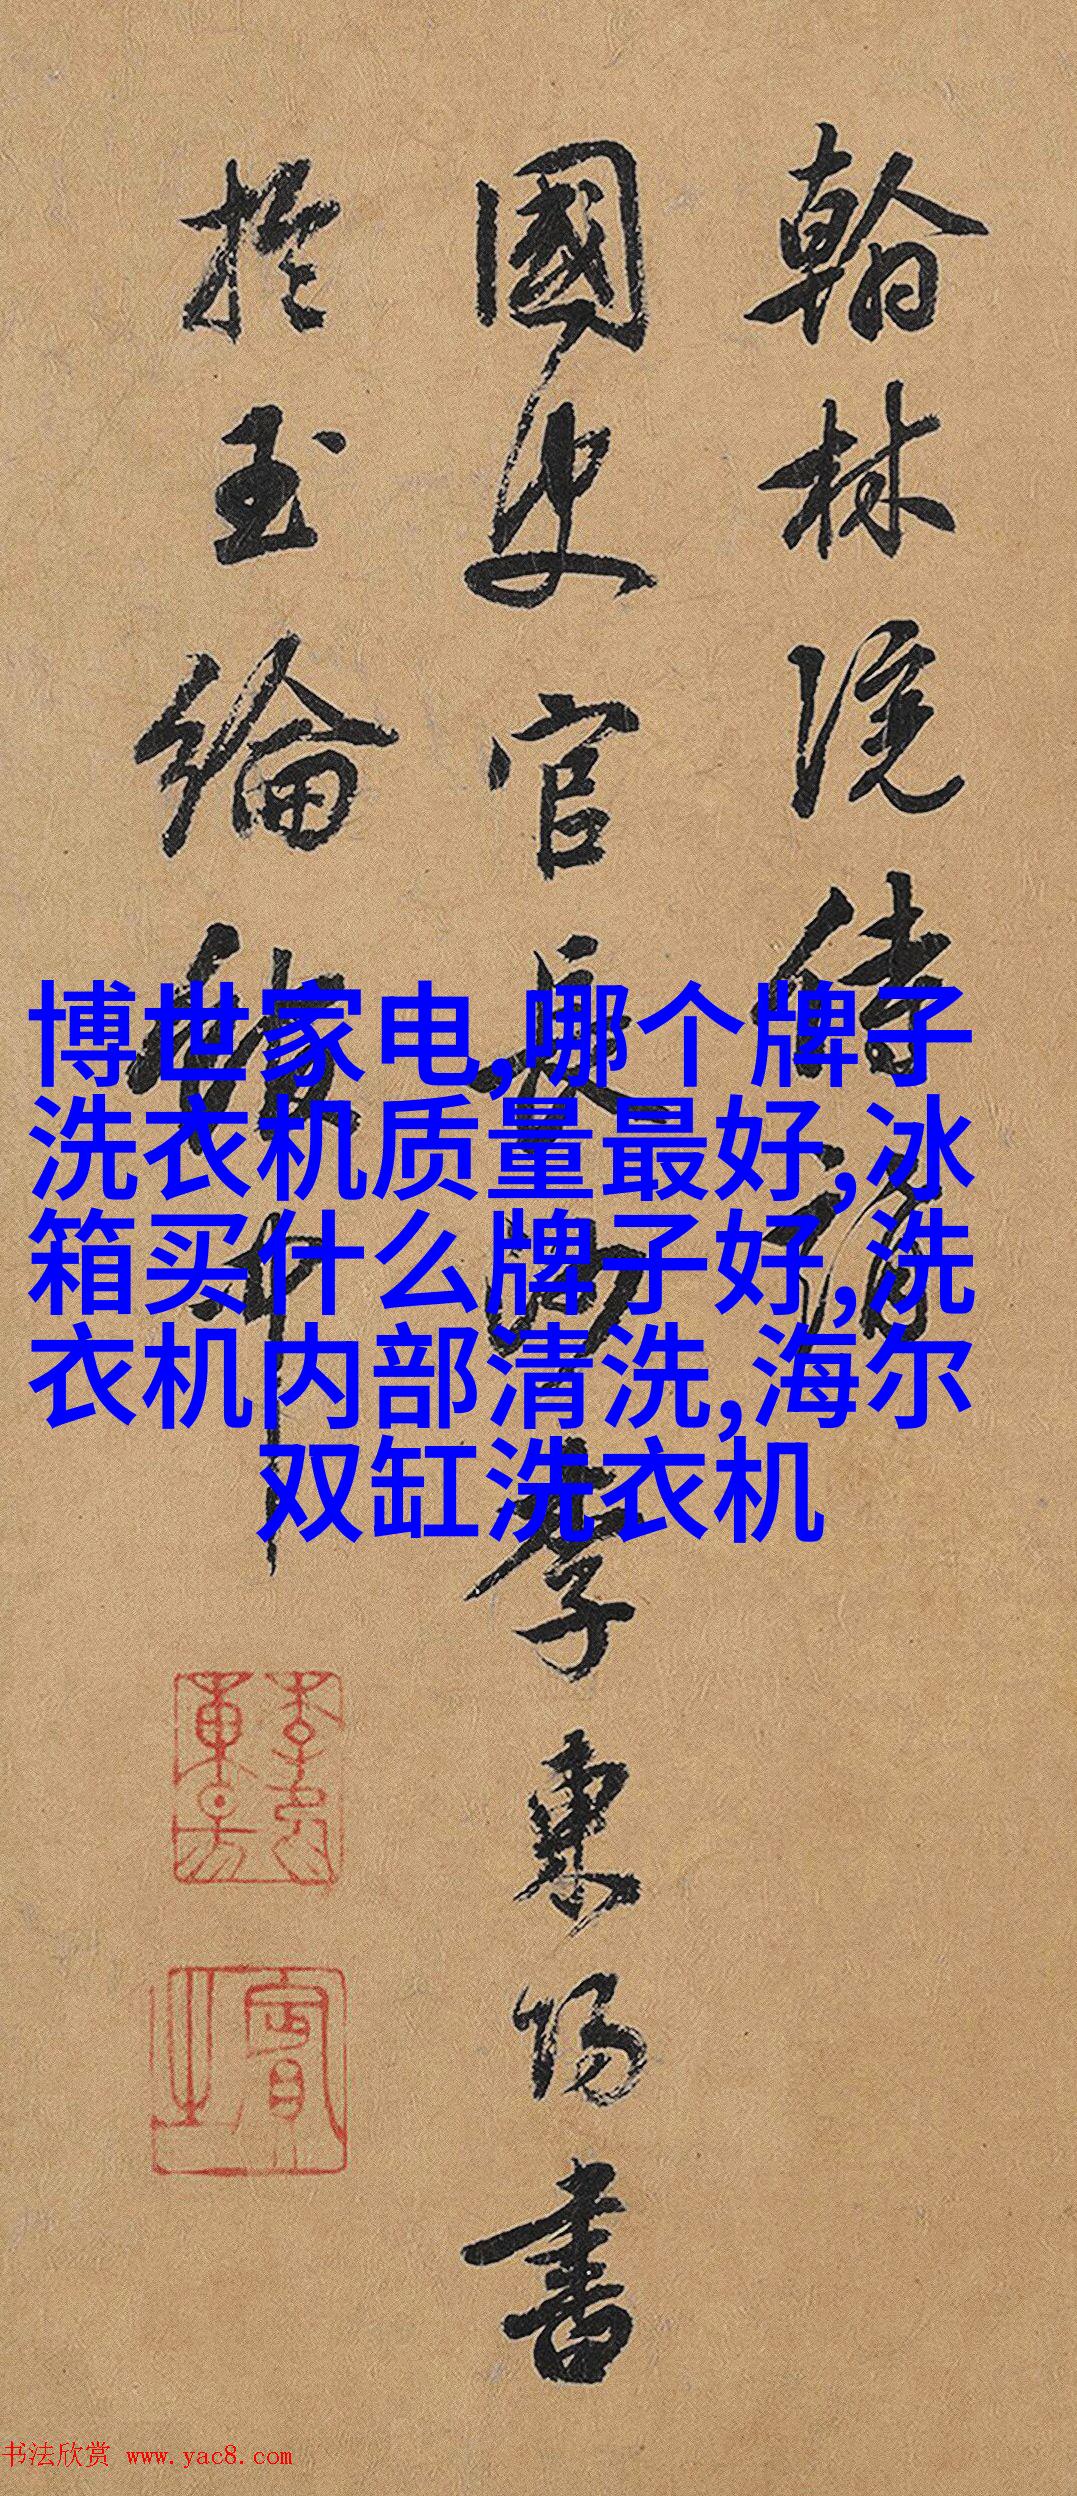 翰林院侍講
國史官長沙李東陽書
於玉綸館中
博世家电,哪个牌子
洗衣机质量最好,冰
箱买什么牌子好,洗
衣机内部清洗,海尔
双缸洗衣机
书法欣赏 www.yac8.com